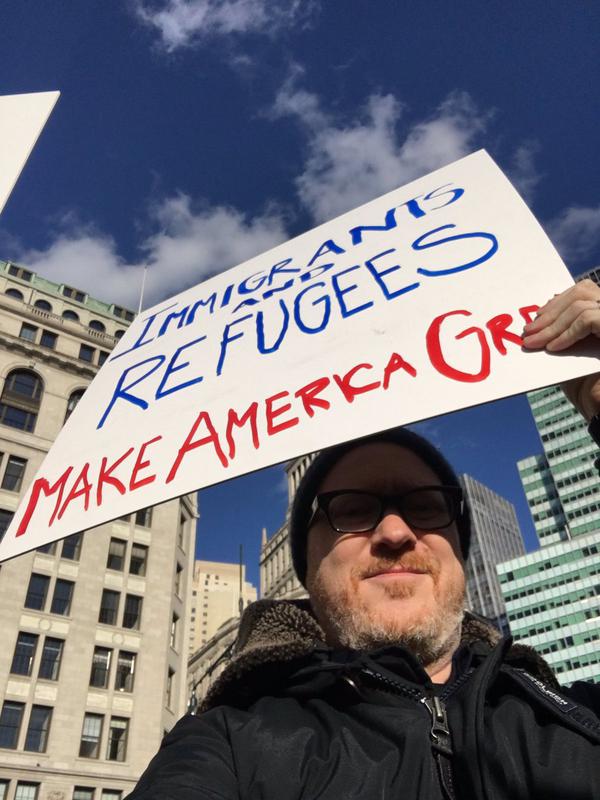 IMMIGRANTS
AND
REFUGEES
MAKE AMERICA GRE